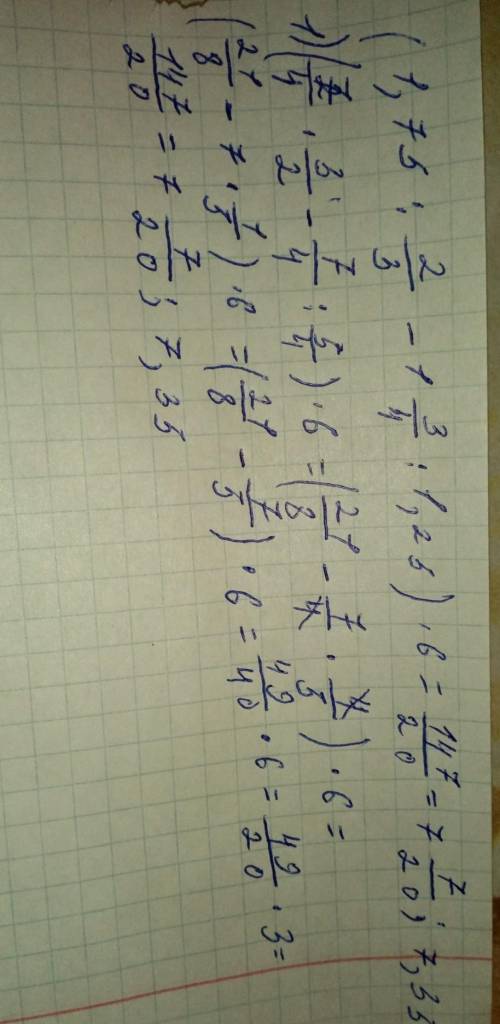 (1,75 : 2/3 − 1 3/4 : 1,25) · 6 = 147/20 = 7 7/20; 7,35
1) (7/4 · 3/2 − 7/4 : 5/4) · 6 = (21/8 − 7/4 · 4/5) · 6 =
(21/8 − 7 · 1/5) · 6 = (21/8 − 7/5) · 6 = 49/40 · 6 = 49/20 · 3 =
147/20 = 7 7/20; 7,35